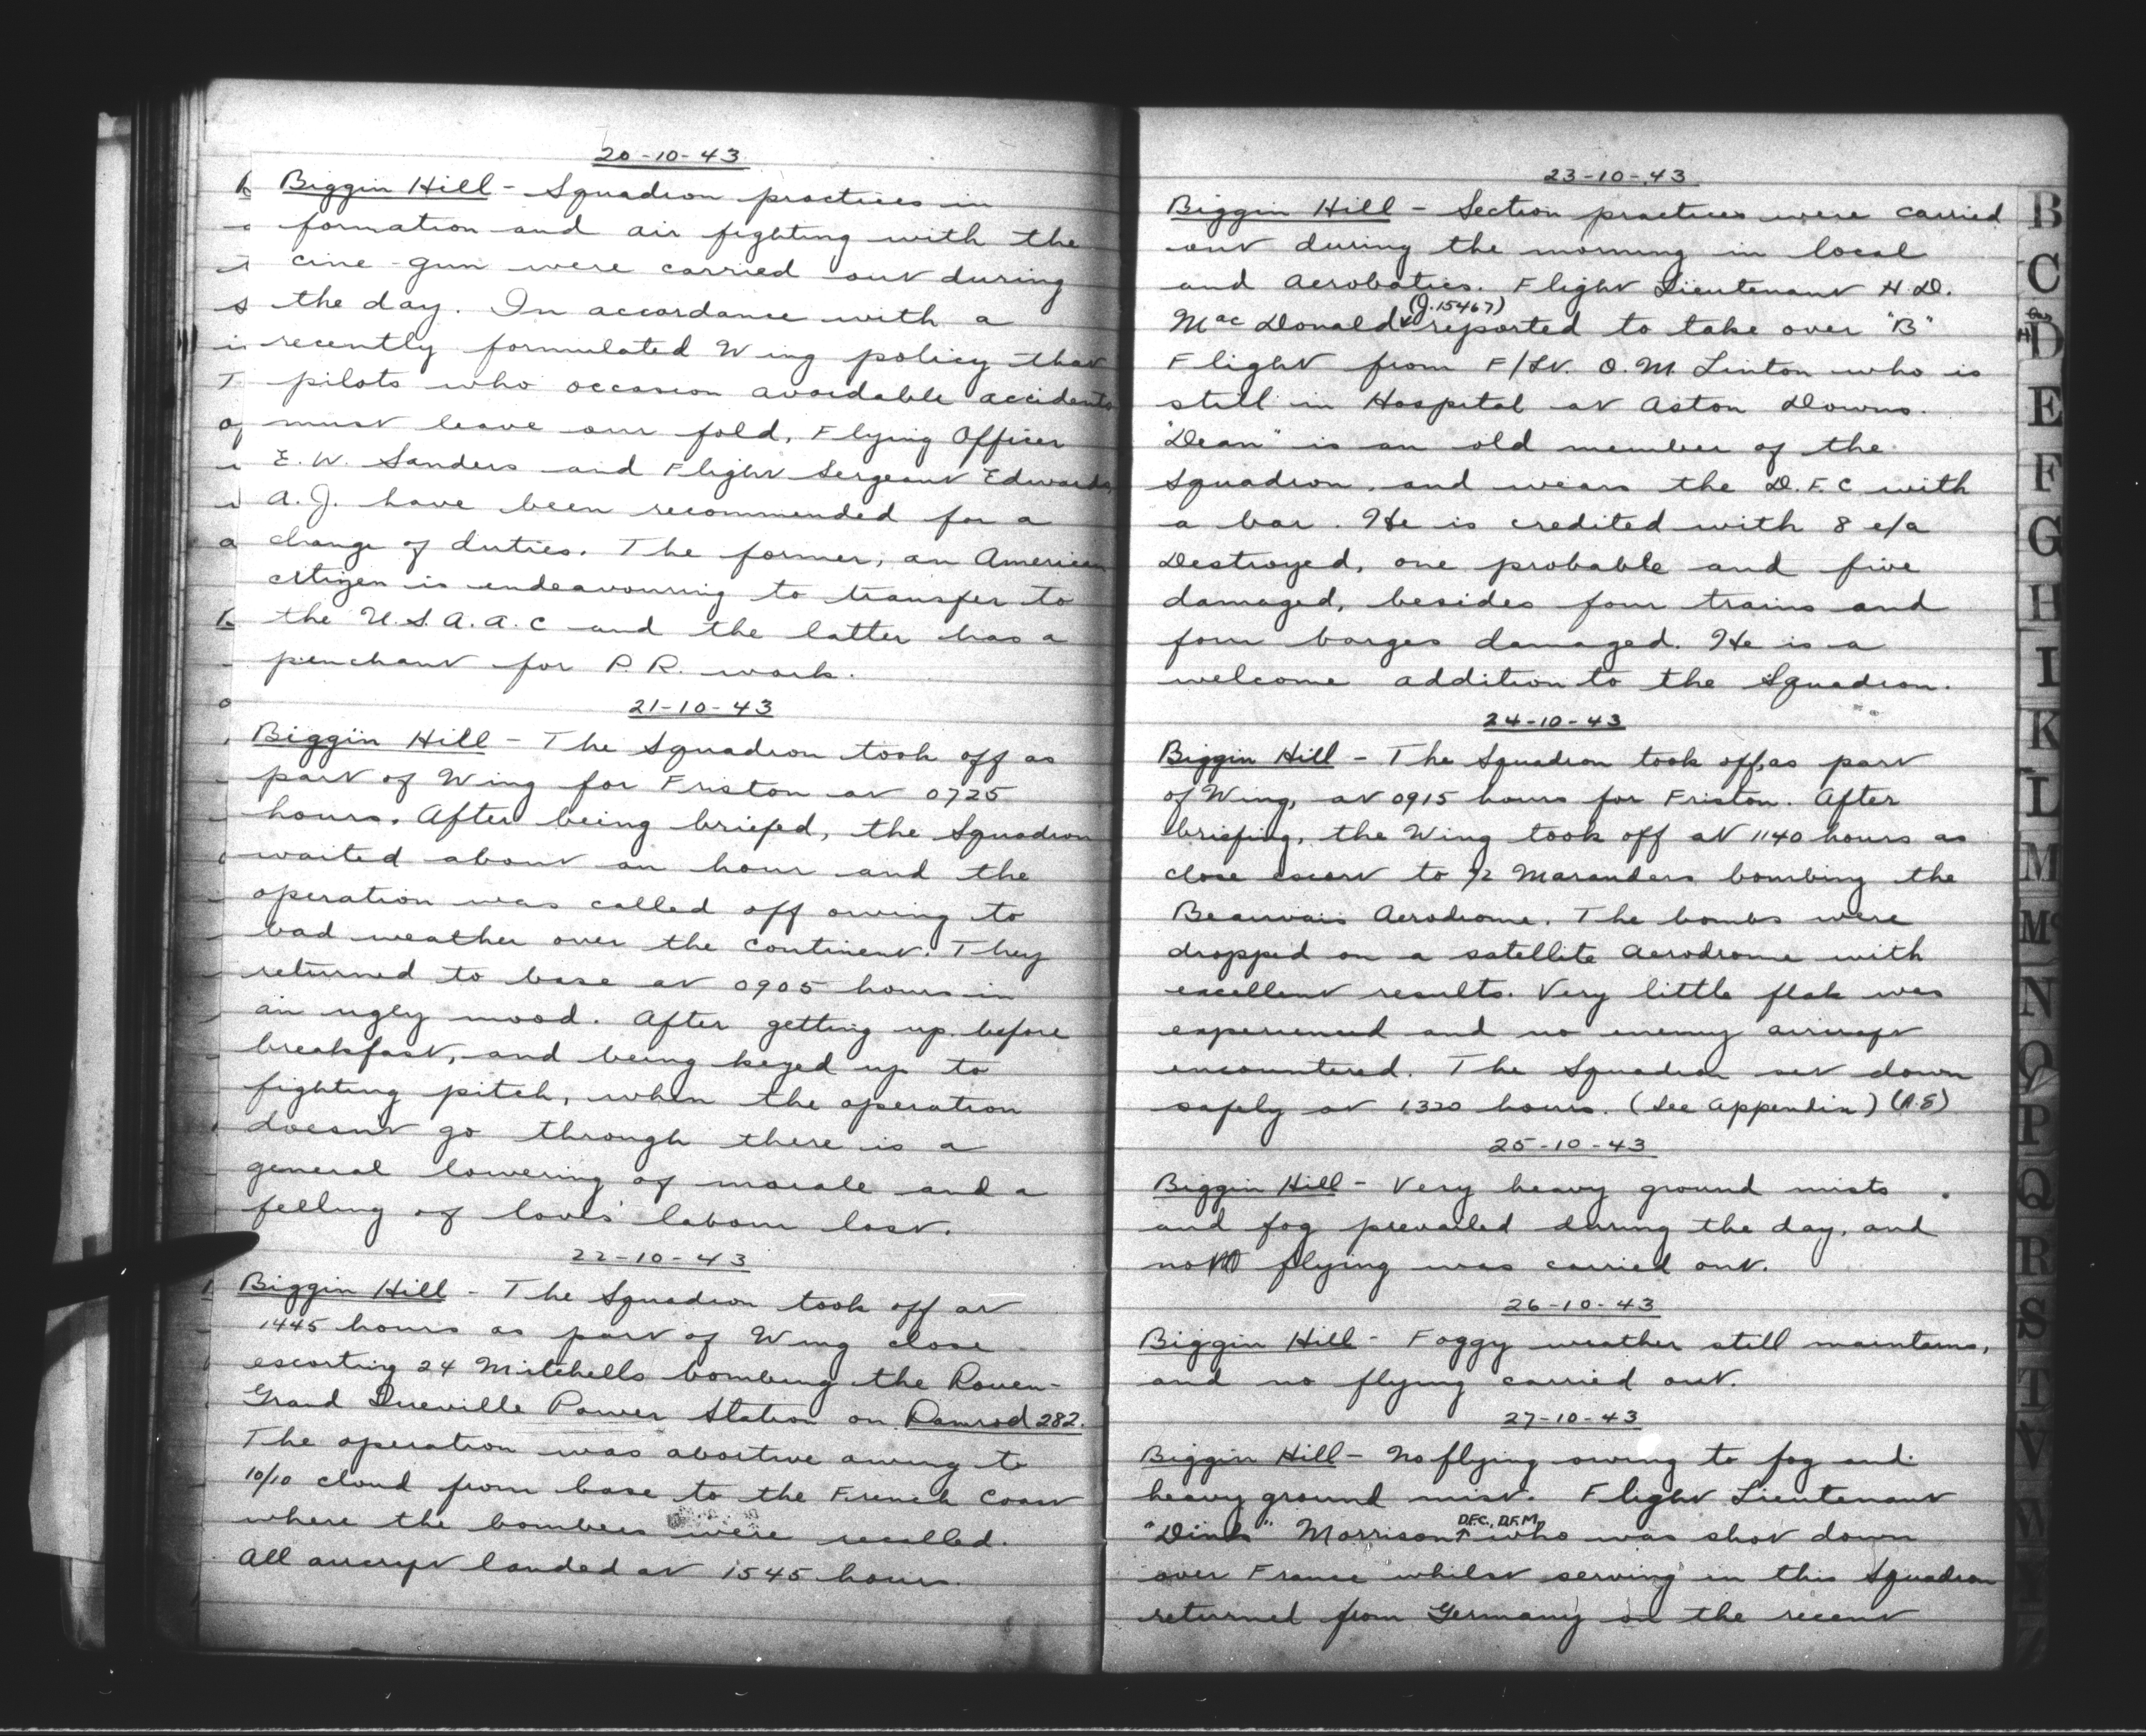 20-10-43
Biggin Hill - Squadron practices in
formation and air fighting with the
cine-gun were carried out during
the day. In accordance with a
recently formulated Wing policy that
pilots who occasion avoidable accidents
must leave our fold, Flying Officer
E. W. Sanders and Flight Sergeant Edwards,
A. J. have been recommended for a
change of duties. The former, an American
citizen is endeavouring to transfer to
the U.S.A.A.C and the latter has a
penchant for P.R. work.
21-10-43
Biggin Hill - The Squadron took off as
part of Wing for Friston at 0725
hours. After being briefed, the Squadron
waited about an hour and the
operation was called off owing to
bad weather over the continent. They
returned to base at 0905 hours in
an ugly mood. After getting up before
breakfast, and being keyed up to
fighting pitch, when the operation
doesnt go through there is a
general lowering of morale and a
felling of loves' labour lost.
22-10-43
Biggin Hill - The Squadron took off at
1445 hours as part of Wing close
escorting 24 Mitchells bombing the Rouen-
Grand Queville Power Station on Ramrod 282.
The operation was abortive owing to
10/10 cloud from base to the French Coast
where the bombers were recalled.
All aircraft landed at 1545 hours.
23-10-43
Biggin Hill - Section practices were carried
out during the morning in local
and Aerobatics. Flight Lieutenant H.D.
MacDonald (J.15467) reported to take over "B"
Flight from F/Lt. O.M. Linton who is
still in Hospital at Aston Downs.
"Dean" is an old member of the
squadron, and wears the D.F.C with
a bar. He is credited with 8 e/a
Destroyed, one probable and five
damaged, besides four trains and
four barges damaged. He is a
welcome addition to the Squadron.
24-10-43
Biggin Hill - The Squadron took off, as part
of Wing, at 0915 hours for Friston. After
briefing, the Wing took off at 1140 hours as
close escort to 72 Marauders bombing the
Beauvais Aerodrome. The bombs were
dropped on a satellite Aerodrome with
excellent results. Very little flak was
experienced and no enemy aircraft
encountered. The Squadron set down
safely at 1320 hours. (See Appendix)
25-10-43
Biggin Hill - Very heavy ground mists
and fog prevailed during the day, and
no flying was carried out.
26-10-43
Biggin Hill - Foggy weather still maintains,
and no flying carried out.
27-10-43
Biggin Hill - No flying owing to fog and
heavy ground mist. Flight Lieutenant
"Dinks" Morrison D.F.C., D.F.M, who was shot down
over France whilst serving in this Squadron
returned from Germany on the recent
B
C
D
E
F
G
H
I
K
L
M
Mc
N
O
P
Q
R
S
T
V
W